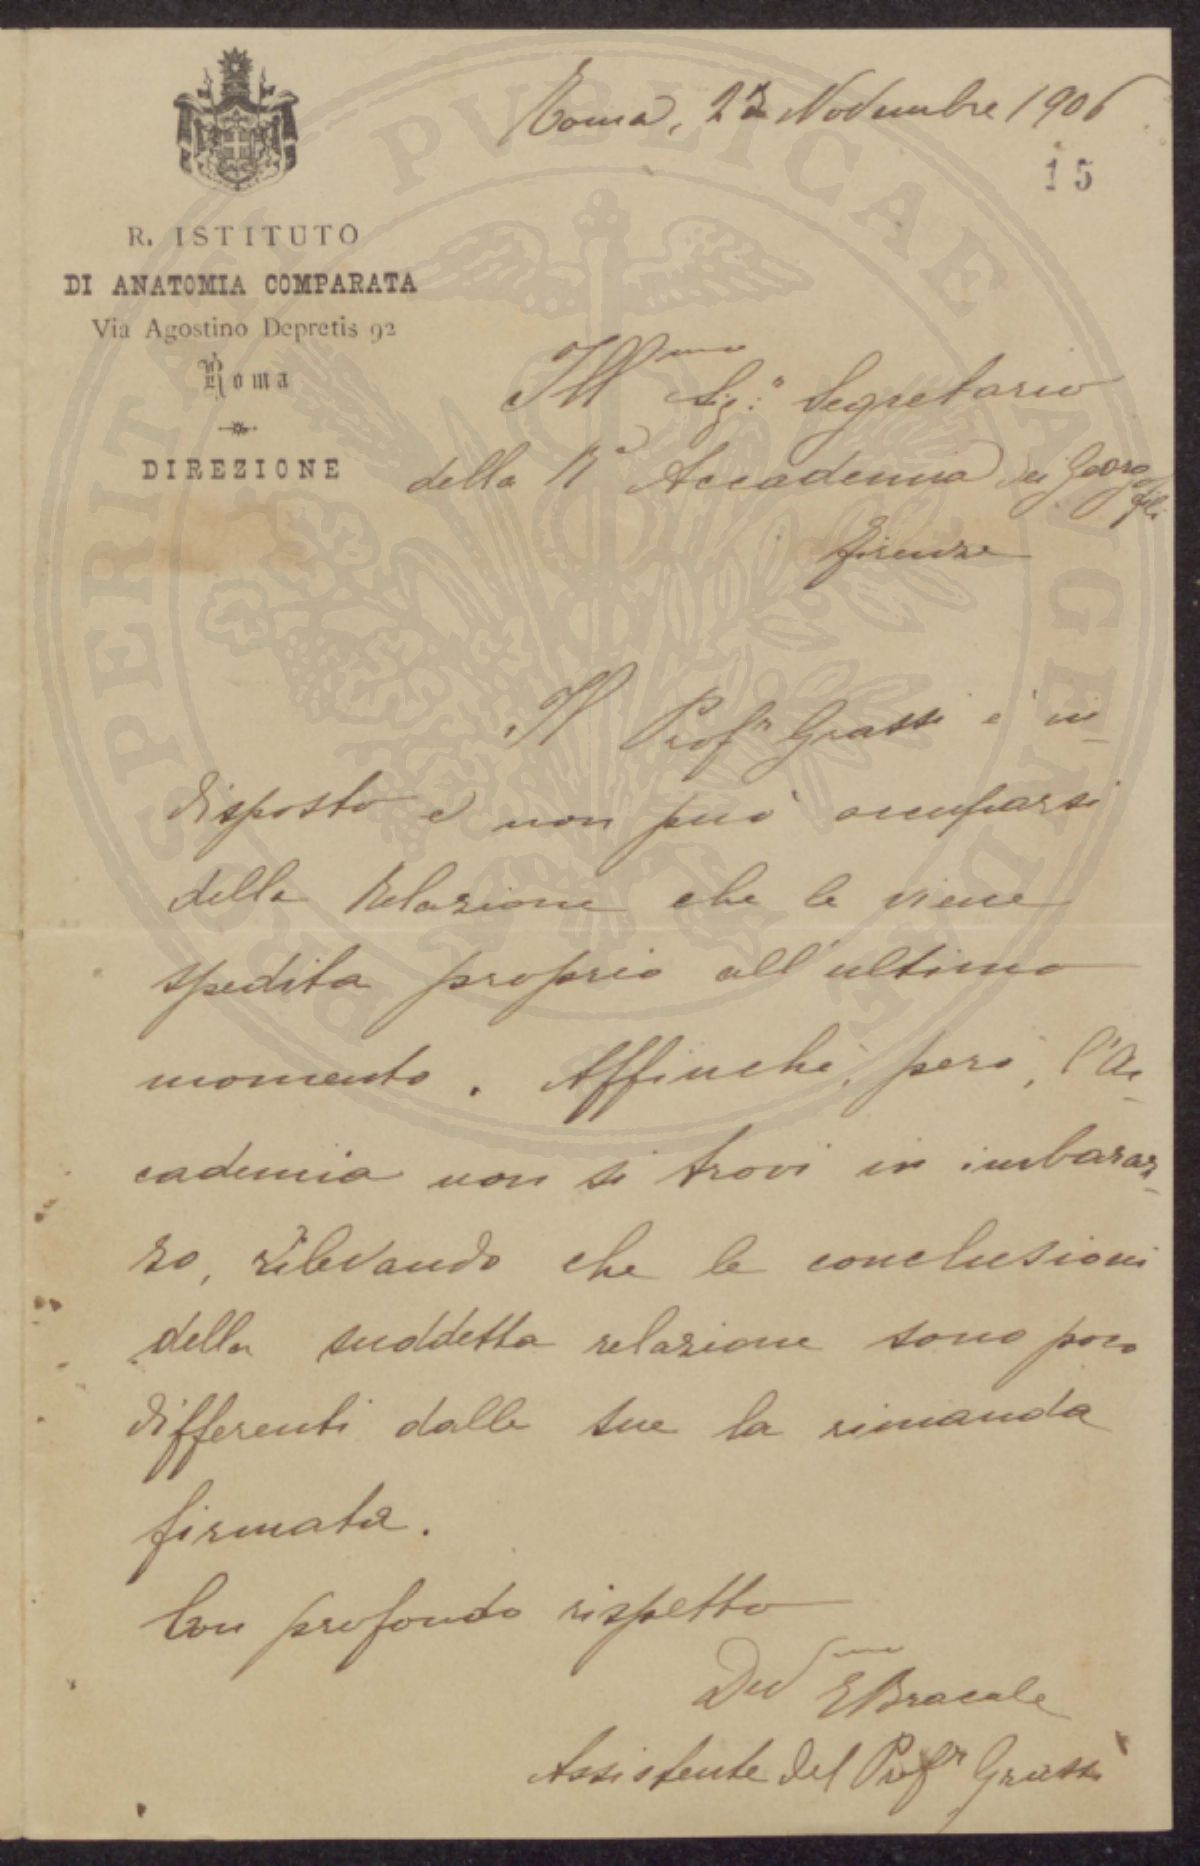 Roma, 23 Novembre 1906
15
R. ISTITUTO
DI ANATOMIA COMPARATA
Via Agostino Depretis 92
Roma
DIREZIONE
Ill.mo Sig.r Segretario
della Ra Accademia dei Georgofili
Firenze
Il Profr Grassi è in-
disposto e non può occuparsi
della Relazione che le viene
spedita proprio all'ultimo
momento. Affinchè, però, l'Ac-
cademia non si trovi in imbaraz-
zo, rilevando che le conclusioni
della suddetta relazione sono poco
differenti dalle sue la rimanda
firmata.
Con profondo rispetto
Devmo EBracale
Assistente del Profr Grassi
PROSPERITATI PVBLICAE AVGENDAE